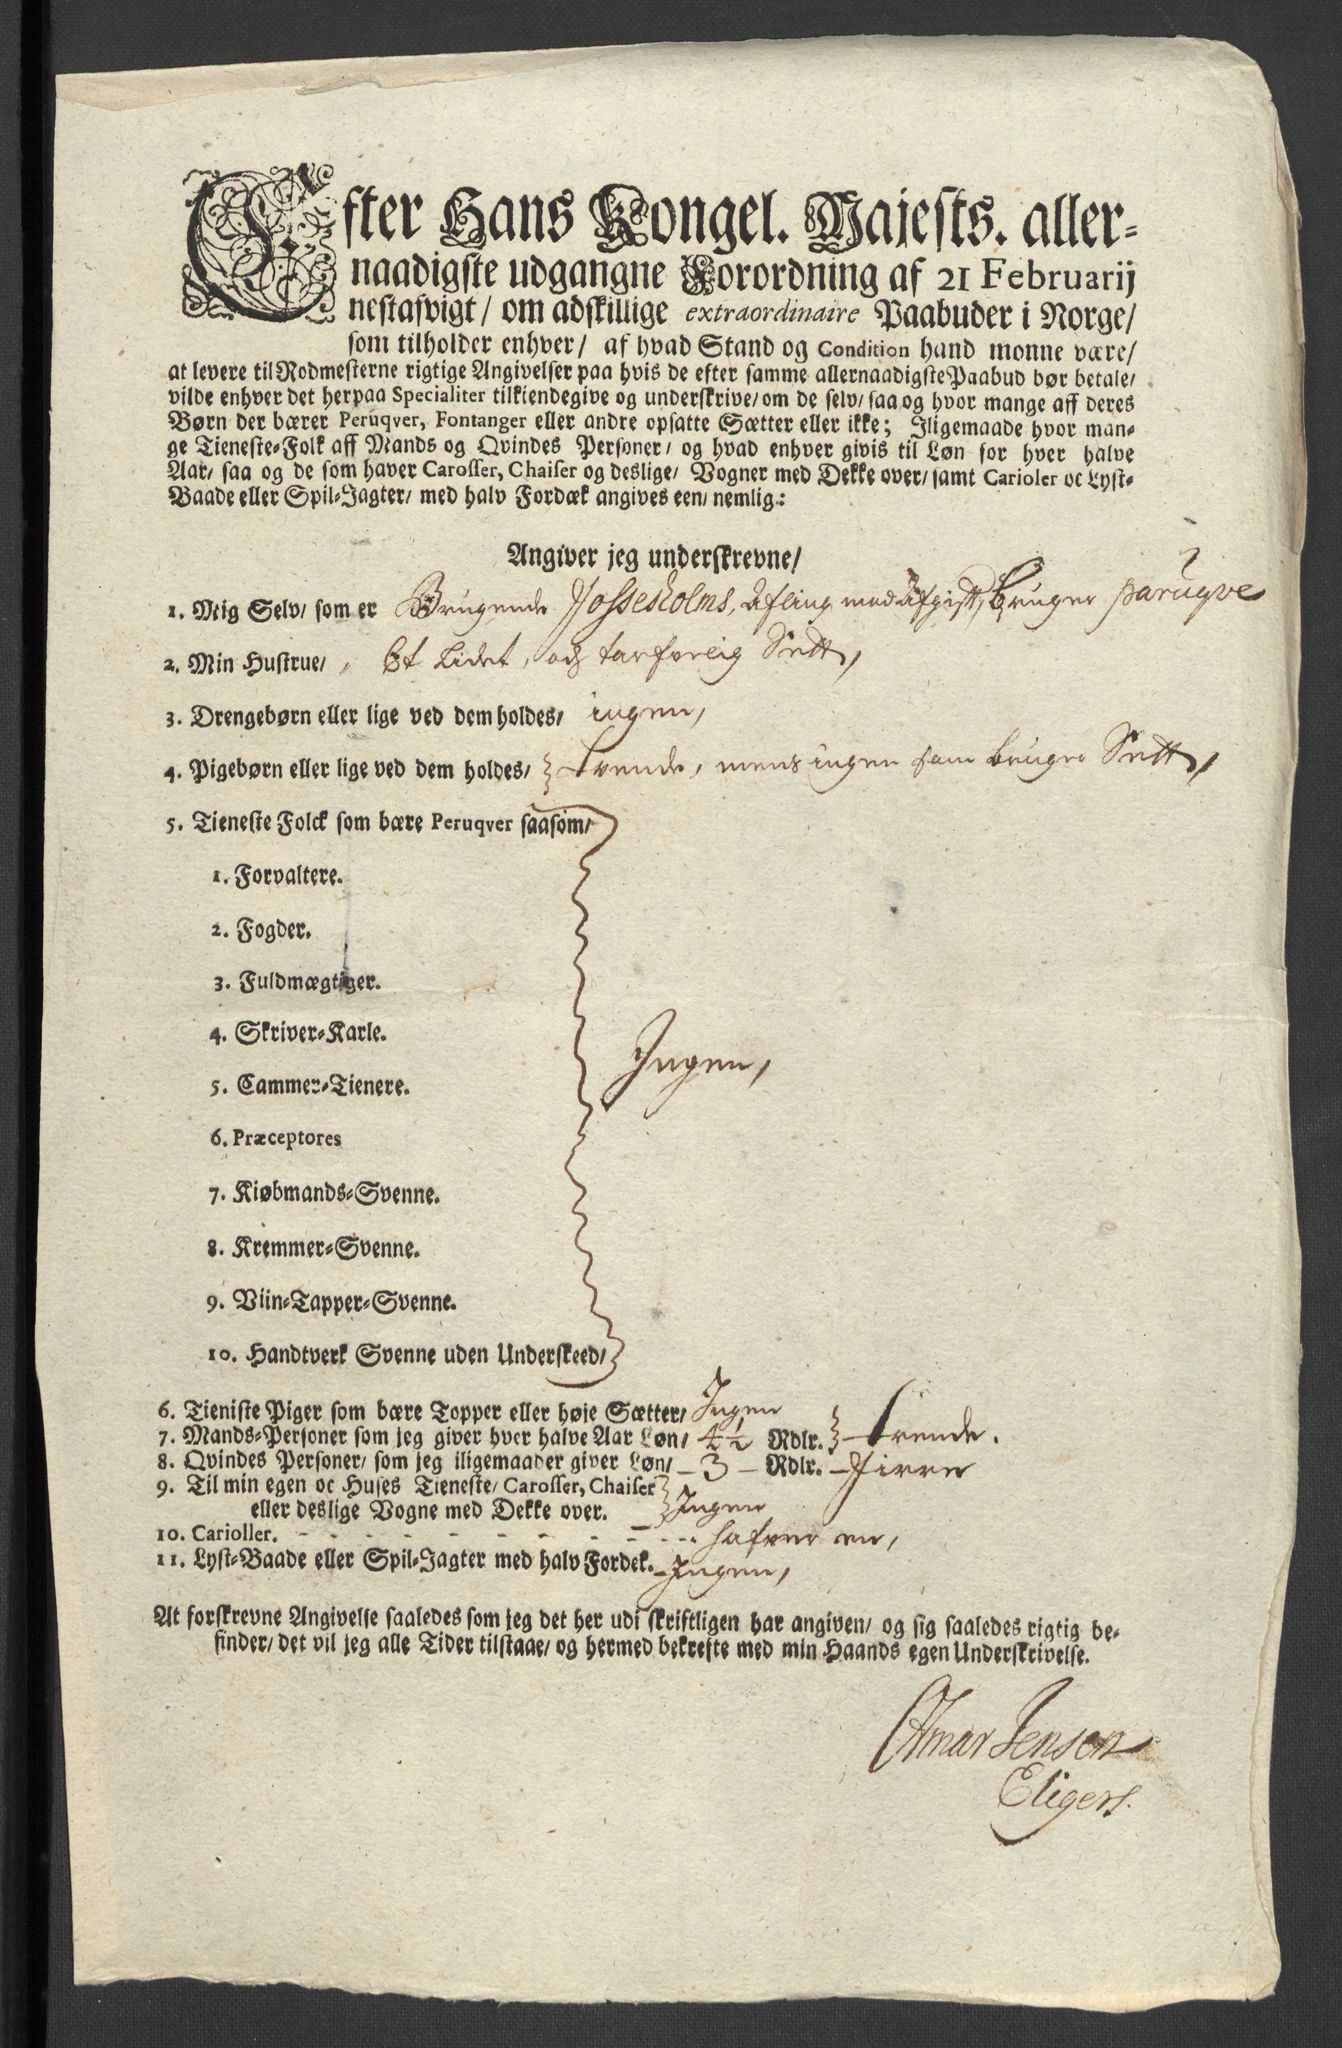 Efter Hans Kongel. Majests. aller-
naadigste udgangne Forordning af 21 Februarij
nestafvigt/ om adskillige extraordinaire Paabuder i Norge/
som tilholder enhver/ af hvad Stand og Condition hand monne være/
at levere til Rodmesterne rigtige Angivelser paa hvis de efter samme allernaadigste Paabud bør betale/
vilde enhver det herpaa Specialiter tilkiendegive og underskrive/ om de selv/ saa og hvor mange aff deres
Børn der bærer Peruqver, Fontanger eller andre opsatte Sætter eller ikke; Iligemaade hvor man-
ge Tieneste-Folk aff Mands og Qvindes Personer/ og hvad enhver givis til Løn for hver halve
Aar/ saa og de som haver Carosser, Chaiser og deslige/ Vogner med Dekke over/ samt Carioler oc Lyst-
Baade eller Spil-Jagter/ med halv Fordæk angives een/ nemlig:
Angiver jeg underskrevne/
1. Mig Selv/ som er Brugende Fosseskolms, Afling med Afgift, bruger paruqve
2. Min Hustrue/ Et Lidet, och tarfvelig Sett,
3. Drengebørn eller lige ved dem holdes/ ingen,
4. Pigebørn eller lige ved dem holdes/ trende, mens ingen som bruger Sett,
5. Tieneste Folck som bære Peruqver saasom/
1. Forvaltere.
2. Fogder.
3. Fuldmægtiger.
4. Skriver-Karle.
5. Cammer-Tienere. Ingen,
6. Præceptores
7. Kiøbmands-Svenne.
8. Kremmer-Svenne.
9. Viin-Tapper-Svenne.
10. Handtverk Svenne uden Underskeed/
6. Tieniste Piger som bære Topper eller høje Sætter/ Ingen
7. Mands-Personer som jeg giver hver halve Aar Løn/ 4½ Rdlr. trende.
8. Qvindes Personer/ som jeg iligemaader giver Løn/ - 3 - Rdlr. - Firre
9. Til min egen oc Huses Tieneste/ Carosser, Chaiser
eller deslige Vogne med Dekke over. Ingen
10. Carioller. hafver en,
11. Lyst-Baade eller Spil-Jagter med halv Fordek. - Ingen,
At forskrevne Angivelse saaledes som jeg det her udi skriftligen har angiven/ og sig saaledes rigtig be-
finder/ det vil jeg alle Tider tilstaae/ og hermed bekrefte med min Haands egen Underskrivelse.
Jensen
Eligers.